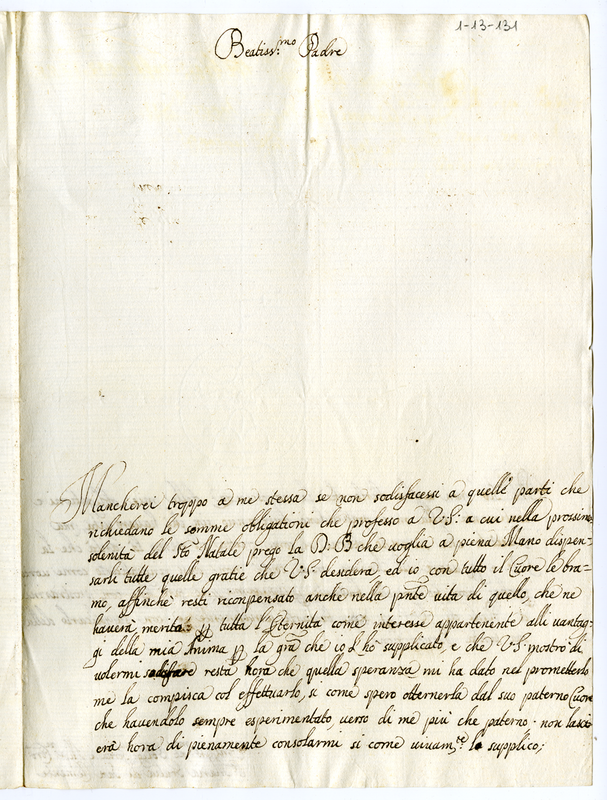 1-13-131
Beatiss.mo Padre
Mancherei troppo a me stessa se non sodisfacessi a quelle parti che
richiedano le somme obligationi che professo a V.S: a cui nella prossima
solenità del Sto Natale prego la D: B che voglia a piena Mano dispen-
sarli tutte quelle gratie che V.S. desidera, ed io con tutto il Cuore le bra-
mo, affinchè resti riconpensato anche nella pnte vita di quello, che ne
haverà merita: tutta l'Eternità come interesse appartenente alli vantag-
gi della mia Anima la gra che io l'hò supplicato, e che V.S. mostrò di
volermi restà hora che quella speranza mi ha dato nel prometterlo
me la compisca col effettuarlo, si come spero ottenerla dal suo paterno Cuore
che havendolo sempre esperimentato, verso di me più che paterno. non lasci
erà hora di pienamente consolarmi si come vivam.te lo supplico;